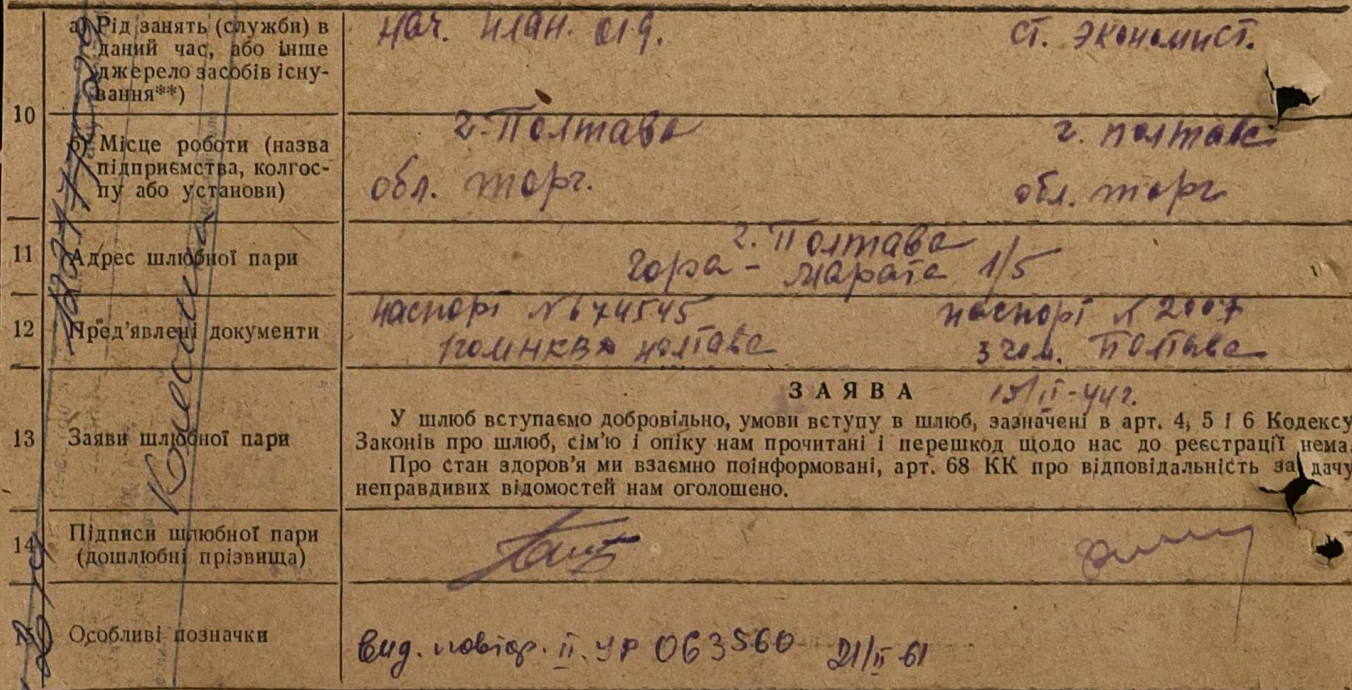 а) Рід занять (служби) в
даний час, або інше
джерело засобів існу-
вання**)
нач. план. отд.
ст. экономист.
10
б) Місце роботи (назва
підприємства, колгос-
пу або установи)
г. Полтава
обл. торг.
г. Полтава
обл. торг
11
Адрес шлюбної пари
г. Полтава
гора - Марата 1/5
12
Пред'явлені документи
паспорт № 674545
Полтава
паспорт № 2007
Полтава
13
Заяви шлюбної пари
ЗАЯВА
15/II-44г.
У шлюб вступаємо добровільно, умови вступу в шлюб, зазначені в арт. 4, 5 і 6 Кодексу
Законів про шлюб, сім'ю і опіку нам прочитані і перешкод щодо нас до реєстрації нема.
Про стан здоров'я ми взаємно поінформовані, арт. 68 КК про відповідальність за дачу
неправдивих відомостей нам оголошено.
14
Підписи шлюбної пари
(дошлюбні прізвища)
15
Особливі позначки
Вид. повтор. II. УР 063560 21/II-61